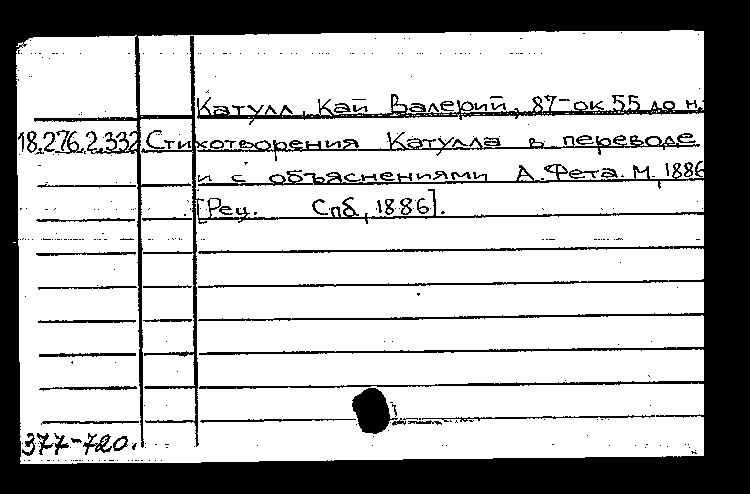 Катулл, Кай Валерий, 87-ок 55 до н.
18.276.2.332 Стихотворения Катулла в переводе
и с объяснениями А. Фета. М, 1886
[Рец. Спб, 1886].
377-720.